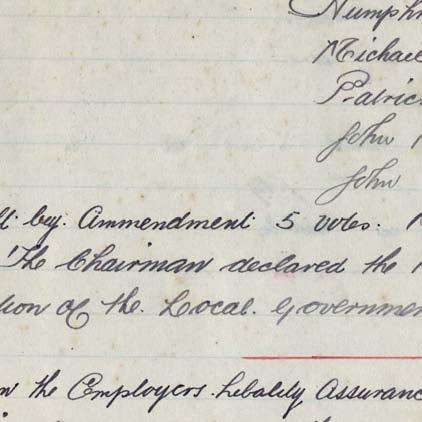 Humphr
Michael
Patric
John
John
by. Ammendment 5 votes.
The Chairman declared the
of the Local Governmen
the Employers. Liebality Assuranc